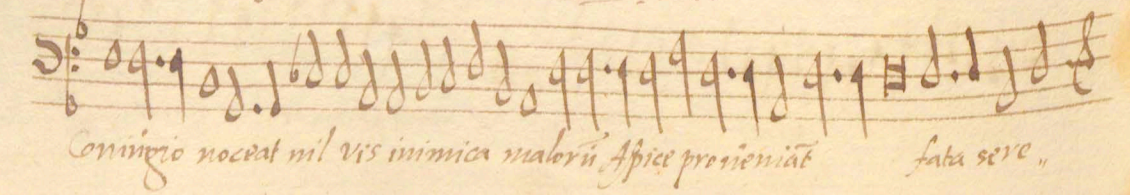 Coniugio noceat nil vis inimica malorū Aspice proueniāt fata sere„